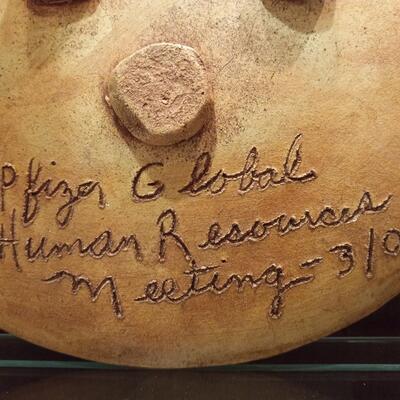 Pfizer Global
Human Resources
Meeting - 3/0